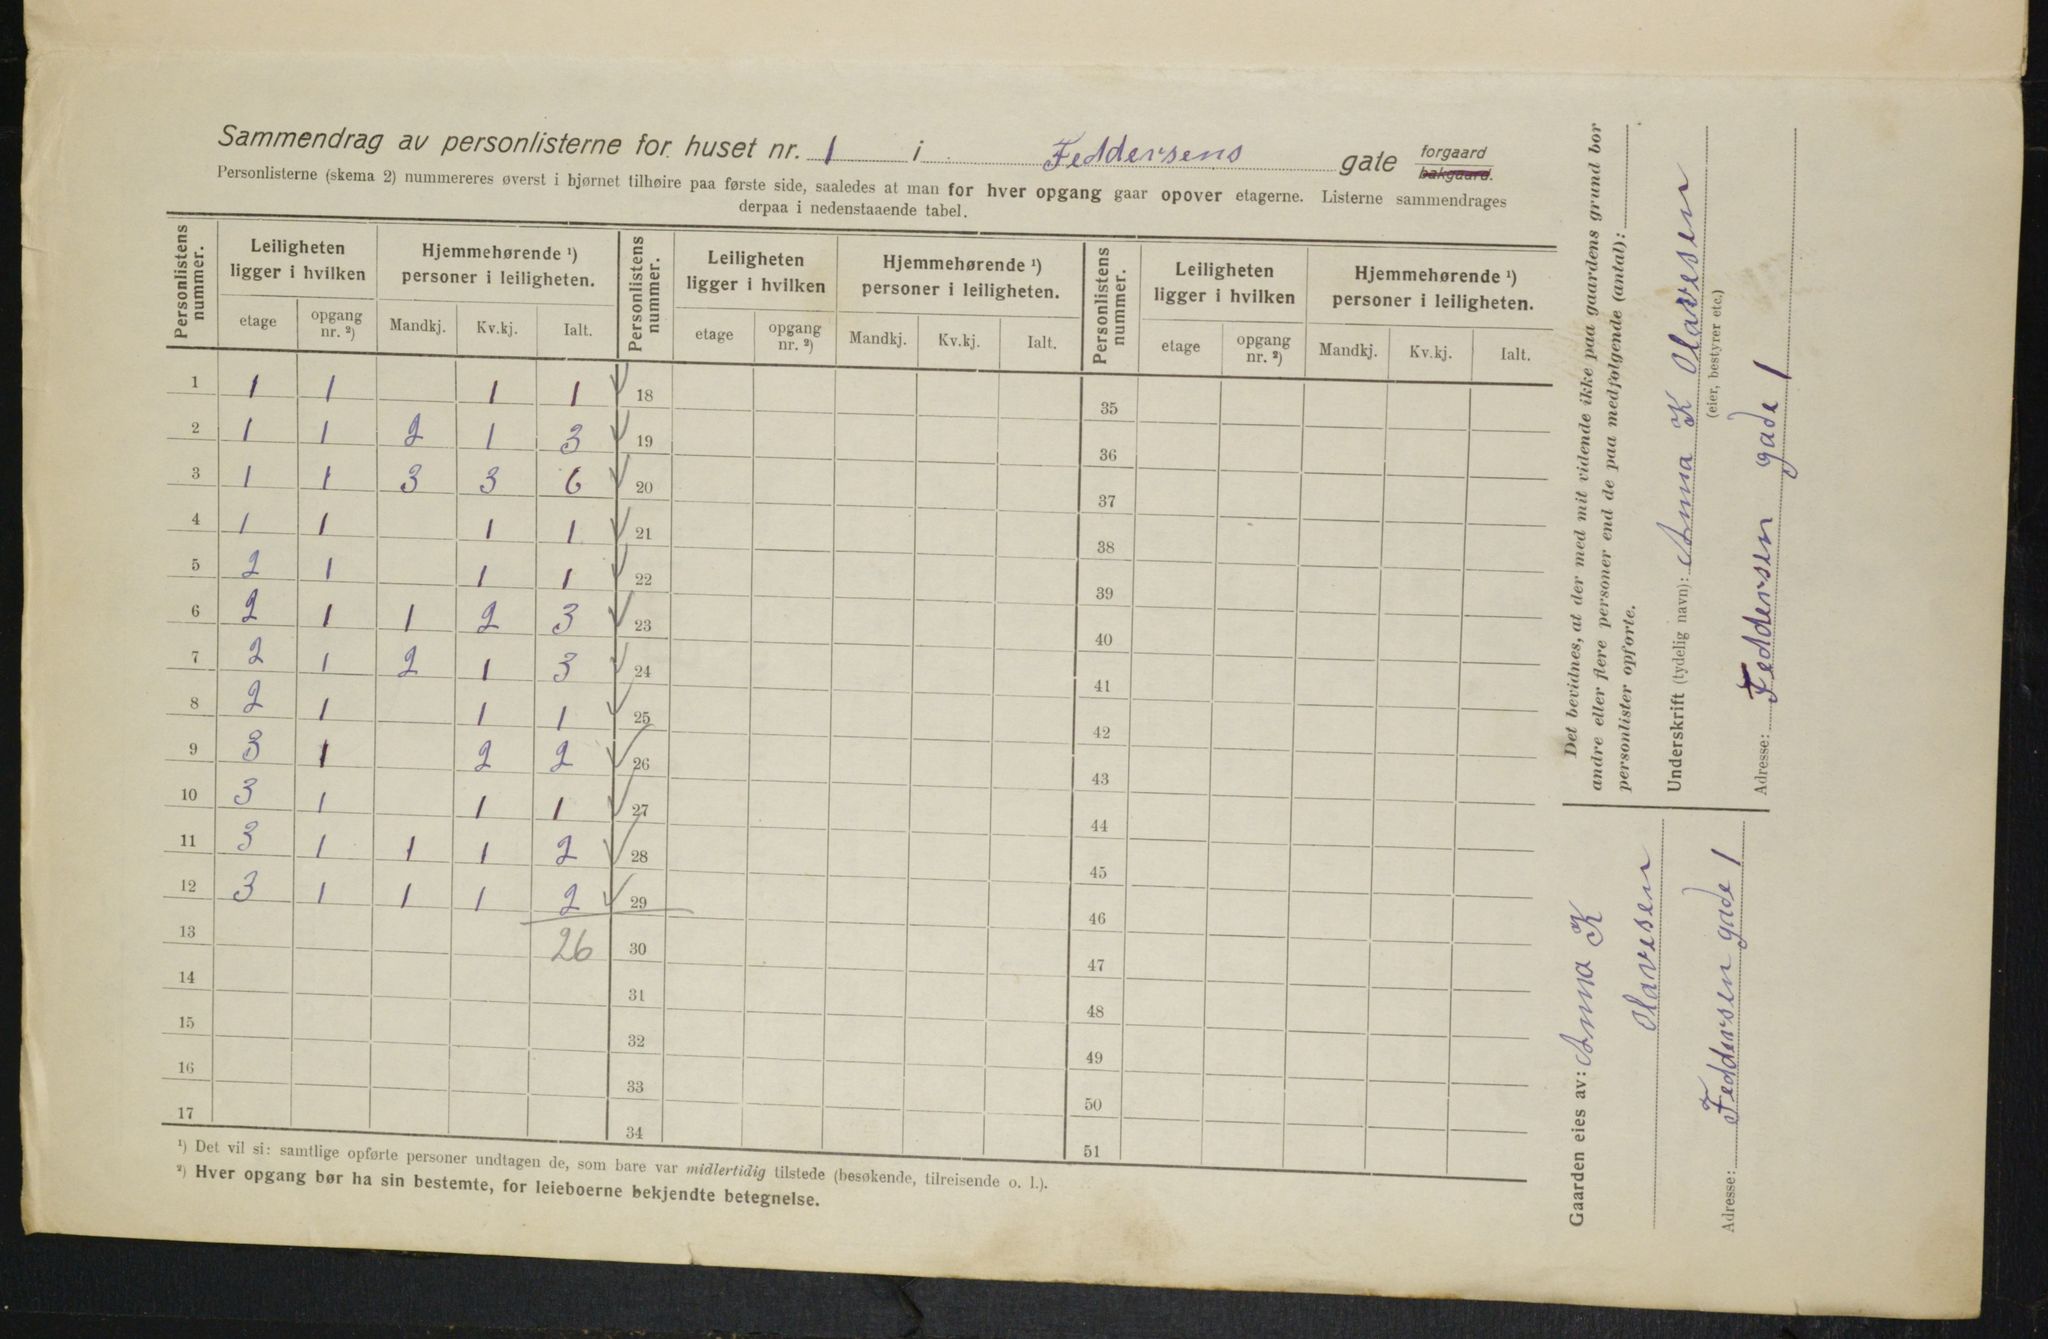 Sammendrag av personlisterne for huset nr. 1 i Feddersens gate forgaard bakgaard.
Personlisterne (skema 2) nummereres øverst i hjørnet tilhøire paa første side, saaledes at man for hver opgang gaar opover etagerne. Listerne sammendrages
derpaa i nedenstaaende tabel.
Personlistens nummer. Leiligheten ligger i hvilken Hjemmehørende ¹) personer i leiligheten. Personlistens nummer. Leiligheten ligger i hvilken Hjemmehørende ¹) personer i leiligheten. Personlistens nummer. Leiligheten ligger i hvilken Hjemmehørende ¹) personer i leiligheten.
etage opgang nr. ²) Mandkj. Kv.kj. Ialt. etage opgang nr. ²) Mandkj. Kv.kj. Ialt. etage opgang nr. ²) Mandkj. Kv.kj. Ialt.
1 1 1 1 1 ✓ 18 35
2 1 1 2 1 3 ✓ 19 36
3 1 1 3 3 6 ✓ 20 37
4 1 1 1 1 ✓ 21 38
5 2 1 1 1 ✓ 22 39
6 2 1 1 2 3 ✓ 23 40
7 2 1 2 1 3 ✓ 24 41
8 2 1 1 1 ✓ 25 42
9 3 1 2 2 ✓ 26 43
10 3 1 1 1 ✓ 27 44
11 3 1 1 1 2 ✓ 28 45
12 3 1 1 1 2 ✓ 29 46
13 26 30 47
14 31 48
15 32 49
16 33 50
17 34 51
¹) Det vil si: samtlige opførte personer undtagen de, som bare var midlertidig tilstede (besøkende, tilreisende o. l.).
²) Hver opgang bør ha sin bestemte, for leieboerne bekjendte betegnelse.
Det bevidnes, at der med mit vidende ikke paa gaardens grund bor
andre eller flere personer end de paa medfølgende (antal):
personlister opførte.
Underskrift (tydelig navn): Anna K Olavesen
(eier, bestyrer etc.)
Adresse: Feddersen gade 1
Gaarden eies av: Anna K
Olavesen
Adresse: Feddersen gade 1